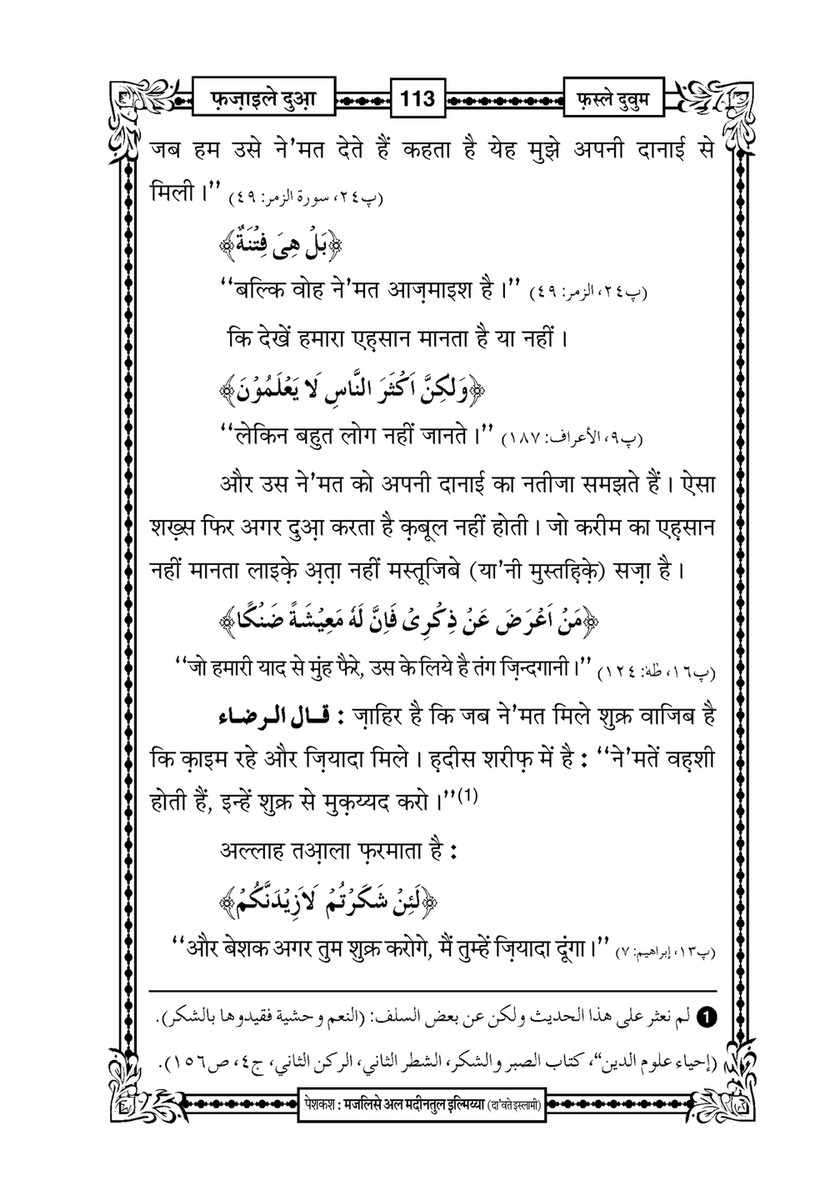 फ़ज़ाइले दुआ़
113
फ़स्ले दुवुम
जब हम उसे ने’मत देते हैं कहता है येह मुझे अपनी दानाई से
मिली ।’’ (پ٢٤، سورة الزمر: ٤٩)
﴿بَلْ هِیَ فِتْنَةٌ﴾
‘‘बल्कि वोह ने’मत आज़माइश है ।’’ (پ٢٤، الزمر: ٤٩)
कि देखें हमारा एह़सान मानता है या नहीं ।
﴿وَلٰكِنَّ اَكْثَرَ النَّاسِ لَا یَعْلَمُوْنَ﴾
‘‘लेकिन बहुत लोग नहीं जानते ।’’ (پ٩، الأعراف: ١٨٧)
और उस ने’मत को अपनी दानाई का नतीजा समझते हैं । ऐसा
शख़्स फिर अगर दुआ़ करता है क़बूल नहीं होती । जो करीम का एह़सान
नहीं मानता लाइक़े अ़त़ा नहीं मस्तूजिबे (या’नी मुस्तह़िक़े) सज़ा है ।
﴿مَنْ اَعْرَضَ عَنْ ذِكْرِیْ فَاِنَّ لَهٗ مَعِیْشَةً ضَنْكًا﴾
‘‘जो हमारी याद से मुंह फैरे, उस के लिये है तंग ज़िन्दगानी ।’’ (پ١٦، طٰهٰ: ١٢٤)
قال الرضاء : ज़ाहिर है कि जब ने’मत मिले शुक्र वाजिब है
कि क़ाइम रहे और ज़ियादा मिले । ह़दीस शरीफ़ में है : ‘‘ने’मतें वह़शी
होती हैं, इन्हें शुक्र से मुक़य्यद करो ।’’(1)
अल्लाह तआ़ला फ़रमाता है :
﴿لَئِنْ شَكَرْتُمْ لَاَزِیْدَنَّكُمْ﴾
‘‘और बेशक अगर तुम शुक्र करोगे, मैं तुम्हें ज़ियादा दूंगा ।’’ (پ١٣، إبراهيم: ٧)
1 لم نعثر على هذا الحديث ولكن عن بعض السلف: (النعم وحشية فقيدوها بالشكر).
(إحياء علوم الدين“، كتاب الصبر والشكر، الشطر الثاني، الركن الثاني، ج٤، ص١٥٦).
पेशकश : मजलिसे अल मदीनतुल इ़ल्मिय्या (दा’वते इस्लामी)